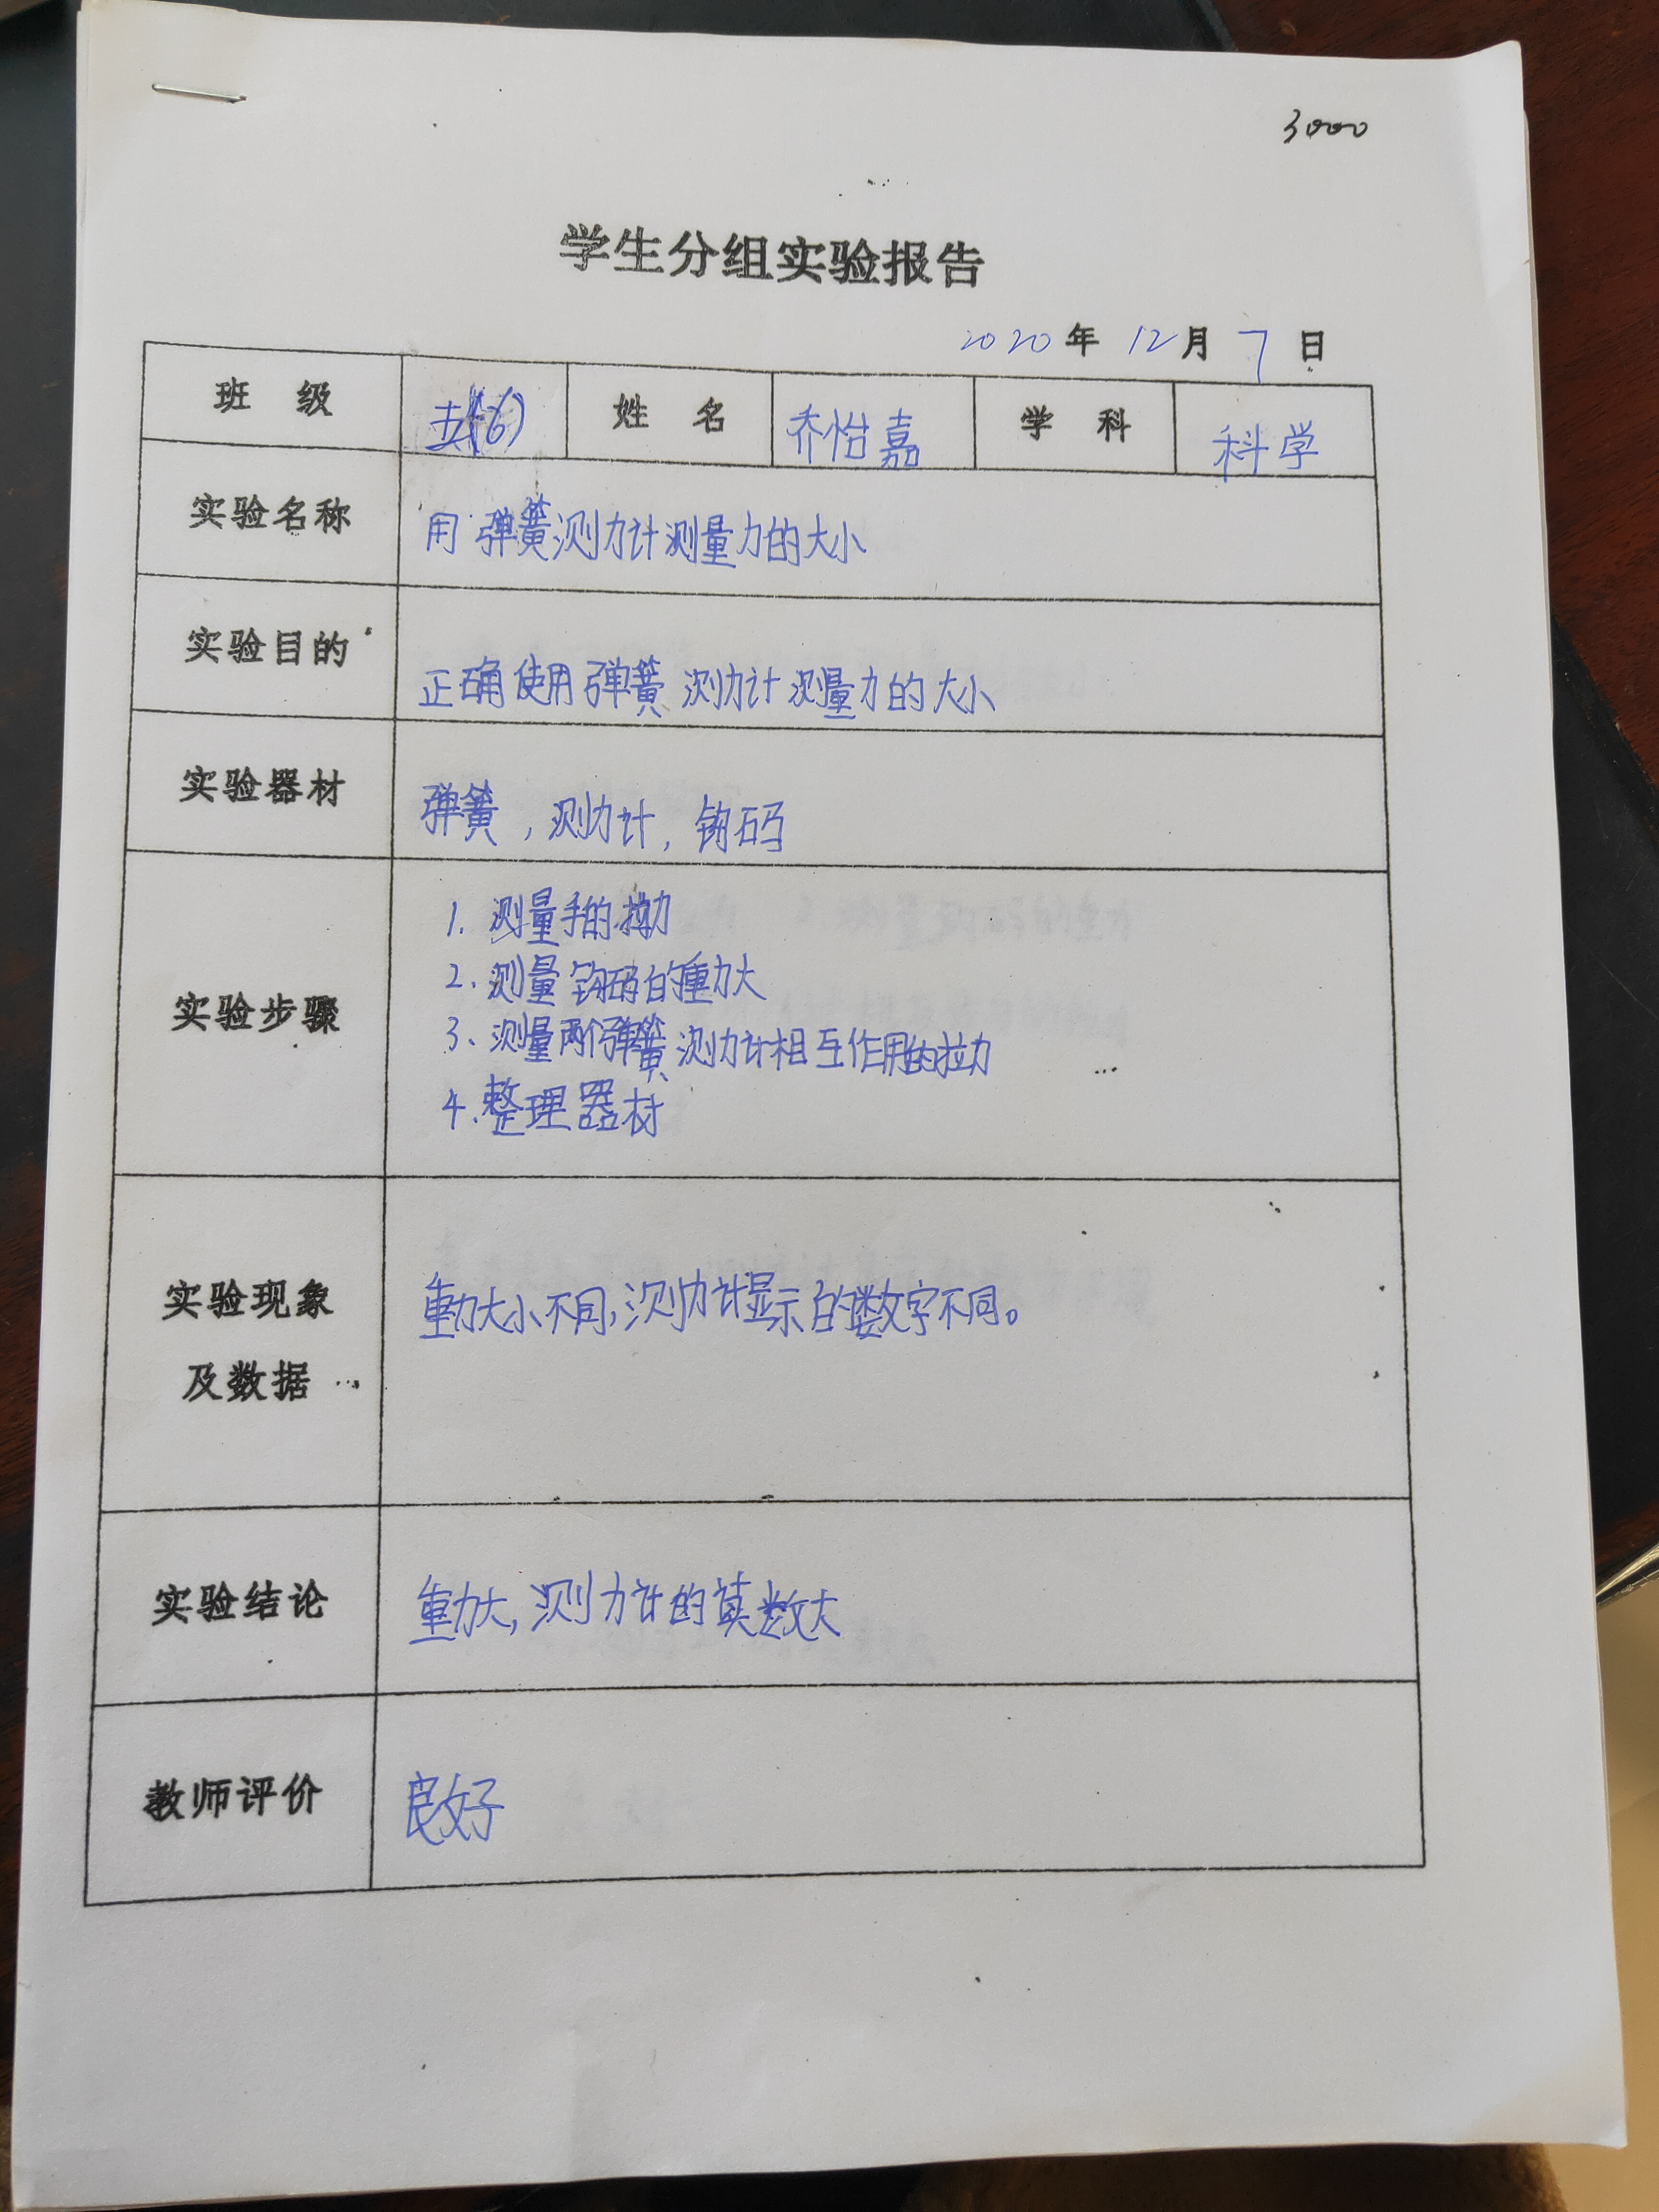 3000
学生分组实验报告
2020年 12月 7日
班 级 五(6) 姓 名 乔怡嘉 学 科 科学
实验名称 用弹簧测力计测量力的大小
实验目的 正确使用弹簧测力计测量力的大小
实验器材 弹簧,测力计,钩码
实验步骤
1. 测量手的拉力
2. 测量钩码的重力大
3、测量两个弹簧测力计相互作用的拉力
4.整理器材
实验现象
及数据
重力大小不同,测力计显示的数字不同。
实验结论 重力大,测力计的读数大
教师评价 良好